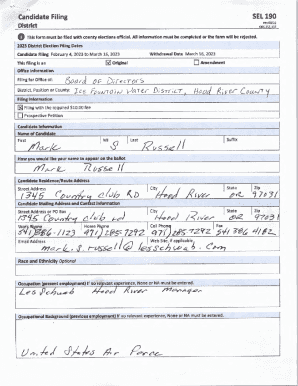 Candidate Filing
District
SEL 190
This form must be filed with county elections official. All information must be completed or the form will be rejected.
2023 District Election Filing Dates
Candidate Filing: February 4, 2023 to March 16, 2023 Withdrawal Date March 16, 2023
This filing is an Original Amendment
Office Information
Filing for Office of: Board of Directors
District, Position or County: Ice Fountain Water District, Hood River County
Filing Information
Filing with the required $10.00 fee
Prospective Petition
Candidate Information
Name of Candidate
First MI Last Suffix
Mark S Russell
How you would like your name to appear on the Ballot
Mark Russell
Candidate Residence/Route Address
Street Address City State Zip
1345 Country Club RD Hood River OR 97031
Candidate Mailing Address and Contact Information
Street Address or PO Box City State Zip
1345 Country Club Rd Hood River OR 97031
Work Phone Home Phone Cell Phone Fax
541 386-1123 971) 285-7292 971) 285 7292 541 386 4182
Email Address Web Site, if applicable
mark.s.russell@lesschwab.com
Race and Ethnicity Optional
Occupation (present employment) If no relevant experience, None or NA must be entered.
Les Schwab Hood River Manager
Occupational Background (previous employment) If no relevant experience, None or NA must be entered.
United States Air Force